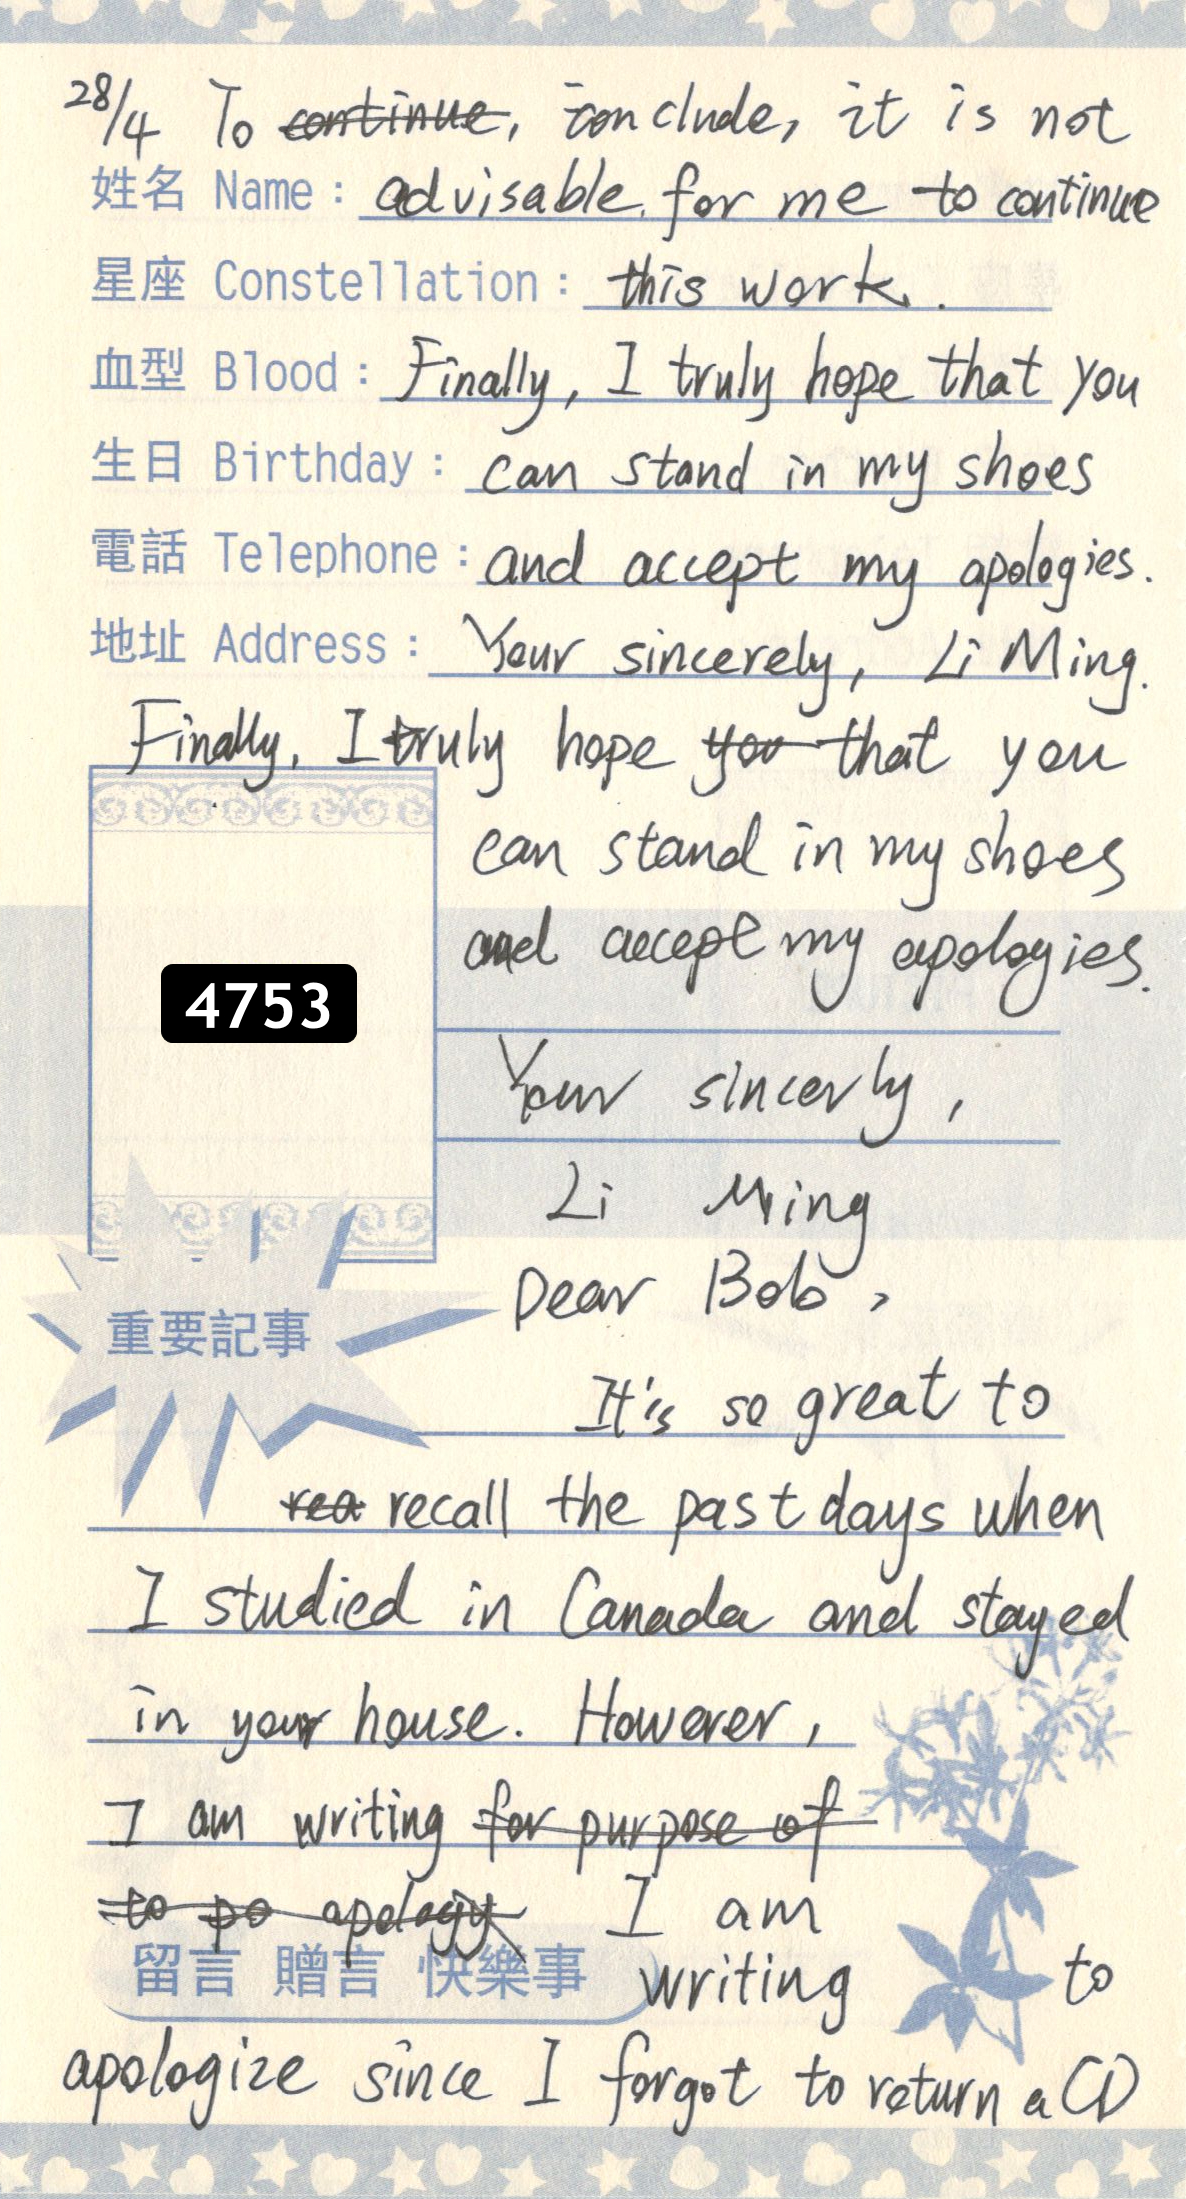 28/4 To continue, conclude, it is not
姓名 Name: advisable for me to continue
星座 Constellation: this work.
血型 Blood: Finally, I truly hope that you
生日 Birthday: can stand in my shoes
電話 Telephone: and accept my apologies.
地址 Address: Your sincerely, Li Ming.
Finally, I truly hope you that you
can stand in my shoes
and accept my apologies.
4753
Your sincerly,
Li Ming
Dear Bob,
重要記事
It's so great to
rea recall the past days when
I studied in Canada and stayed
in your house. However,
I am writing for purpose of
to po apology I am
留言 贈言 快樂事 writing to
apologize since I forgot to return a CD